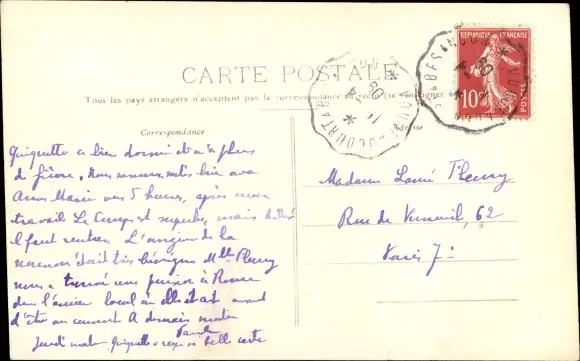 CARTE POSTALE
Tous les pays étrangers n'acceptent pas la correspondance au recto (se renseigner à la
Correspondance
Adresse
RÉPUBLIQUE FRANÇAISE
10
POSTES
BESANÇON
Guiguette a bien dormi et n'a plus
de fièvre. Nous sommes
Anne Marie vers 5 heures, après
travail Le temps est superbe, mais
il faut rentrer L'angine de la
était très bénigne Mlle Fleury
nous a trouvé une pension à Rome
dans l'ancien local où elle était avant
d'être au couvent A demain matin
Jeudi matin Guiguette a reçu sa belle carte
Madame Fleury
Rue de Verneuil, 62
Paris 7e